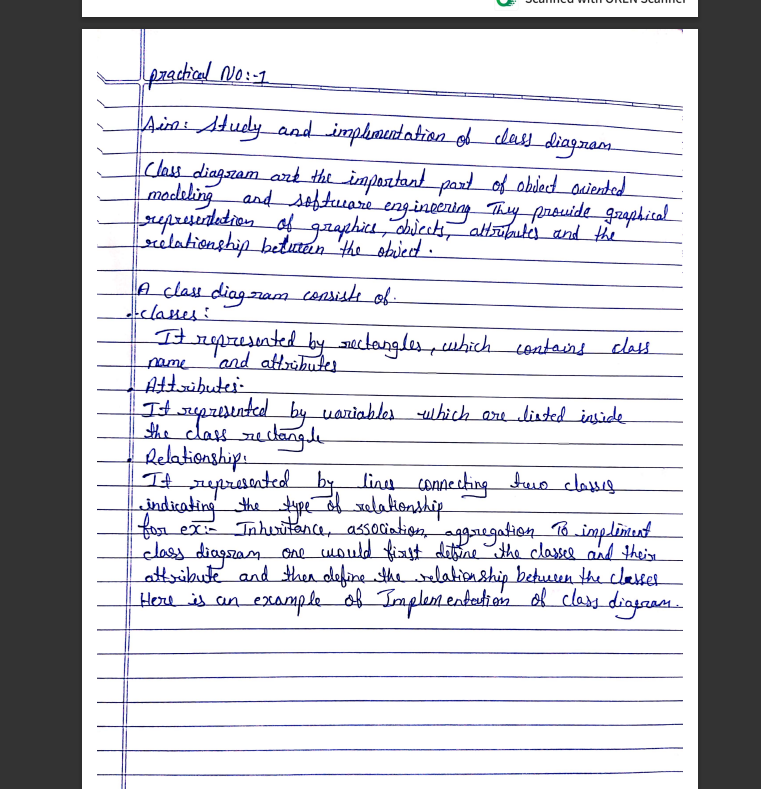 Scanned with OKEN Scanner
practical No:-1
Aim: Study and implementation of class diagram
Class diagram are the important part of object oriented
modeling and software engineering They provide graphical
representation of graphics, objects, attributes and the
relationship between the object.
A class diagram consists of.
• classes:
It represented by rectangles, which contains class
name and attributes
• Attributes:-
It represented by variables which are listed inside
the class rectangle
• Relationship:
It represented by lines connecting two classes
indicating the type of relationship
for ex:- Inheritance, association, aggregation To impliment
class diagram one would first define the classes and their
attribute and then define the relationship between the classes
Here is an example of Implementation of class diagram.